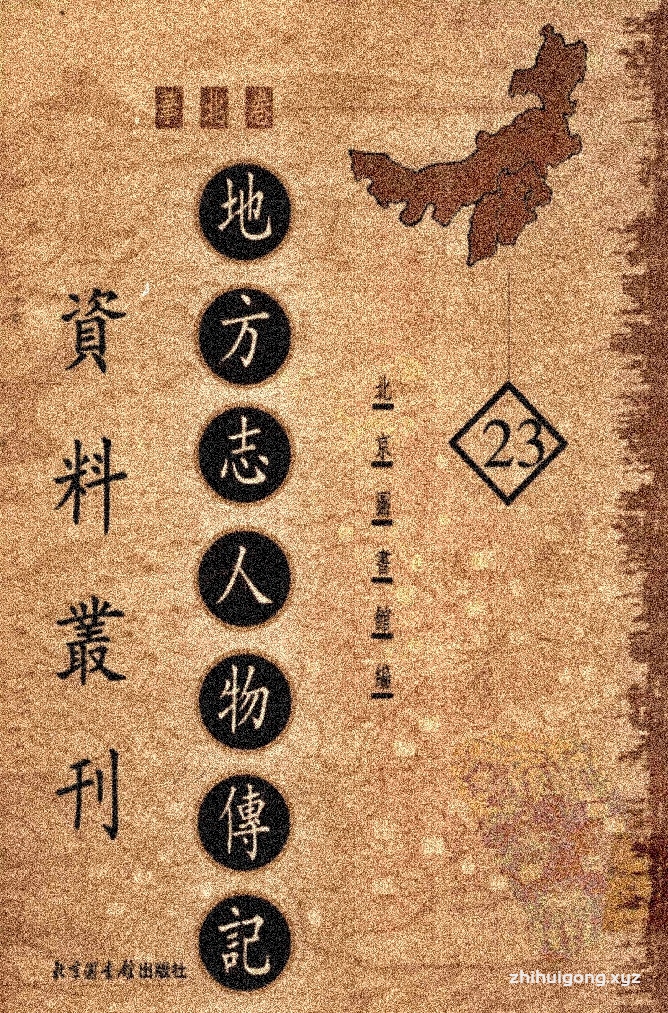 華北卷
地方志人物傳記
資料叢刊
北京圖書館編
23
北京圖書館出版社
zhihuigong.xyz